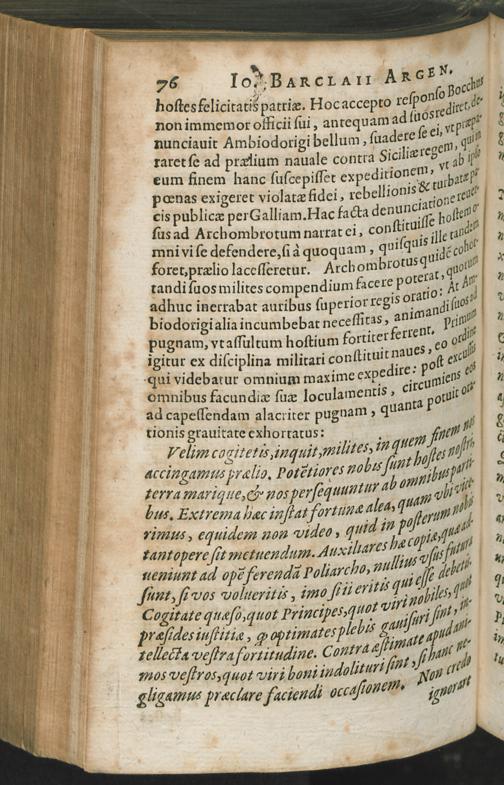 76 Io. BARCLAII ARGEN.
hostes felicitatis patriæ. Hoc accepto responso Bocchus
non immemor officii sui, antequam ad suos rediret, de-
nunciauit Ambiodorigi bellum, suadere se ei, vt præpa-
raret se ad prælium nauale contra Siciliæ regem, qui in
eum finem hanc suscepisset expeditionem, vt ab ipso
pœnas exigeret violatæ fidei, rebellionis & turbatæ pa-
cis publicæ per Galliam. Hac facta denunciatione reuer-
sus ad Archombrotum narrat ei, constituisse hostem o-
mni vi se defendere, si à quoquam, quisquis ille tandem
foret, prælio lacesseretur. Archombrotus quidẽ cohor-
tandi suos milites compendium facere poterat, quorum
adhuc inerrabat auribus superior regis oratio: At Am-
biodorigi alia incumbebat necessitas, animandi suos ad
pugnam, vt assultum hostium fortiter ferrent. Primum
igitur ex disciplina militari constituit naues, eo ordine
qui videbatur omnium maxime expedire: post excussis
omnibus facundiæ suæ loculamentis, circumiens eos
ad capessendam alacriter pugnam, quanta potuit ora-
tionis grauitate exhortatus:
Velim cogitetis, inquit, milites, in quem finem nos
accingamus prælio. Potẽtiores nobis sunt hostes nostri,
terra marique, & nos persequuntur ab omnibus parti-
bus. Extrema hæc instat fortunæ alea, quam vbi vice-
rimus, equidem non video, quid in posterum nobis
tantopere sit metuendum. Auxiliares hæ copiæ, quæ ad-
ueniunt ad opẽ ferendã Poliarcho, nullius vsus futuræ
sunt, si vos volueritis, imo si ii eritis qui esse debetis.
Cogitate quæso, quot Principes, quot viri nobiles, quot
præsides iustitiæ, & optimates plebis gauisuri sint, in-
tellecta vestra fortitudine. Contra æstimate apud ani-
mos vestros, quot viri boni indolituri sint, si hanc ne-
gligamus præclare faciendi occasionem. Non credo
ignorare